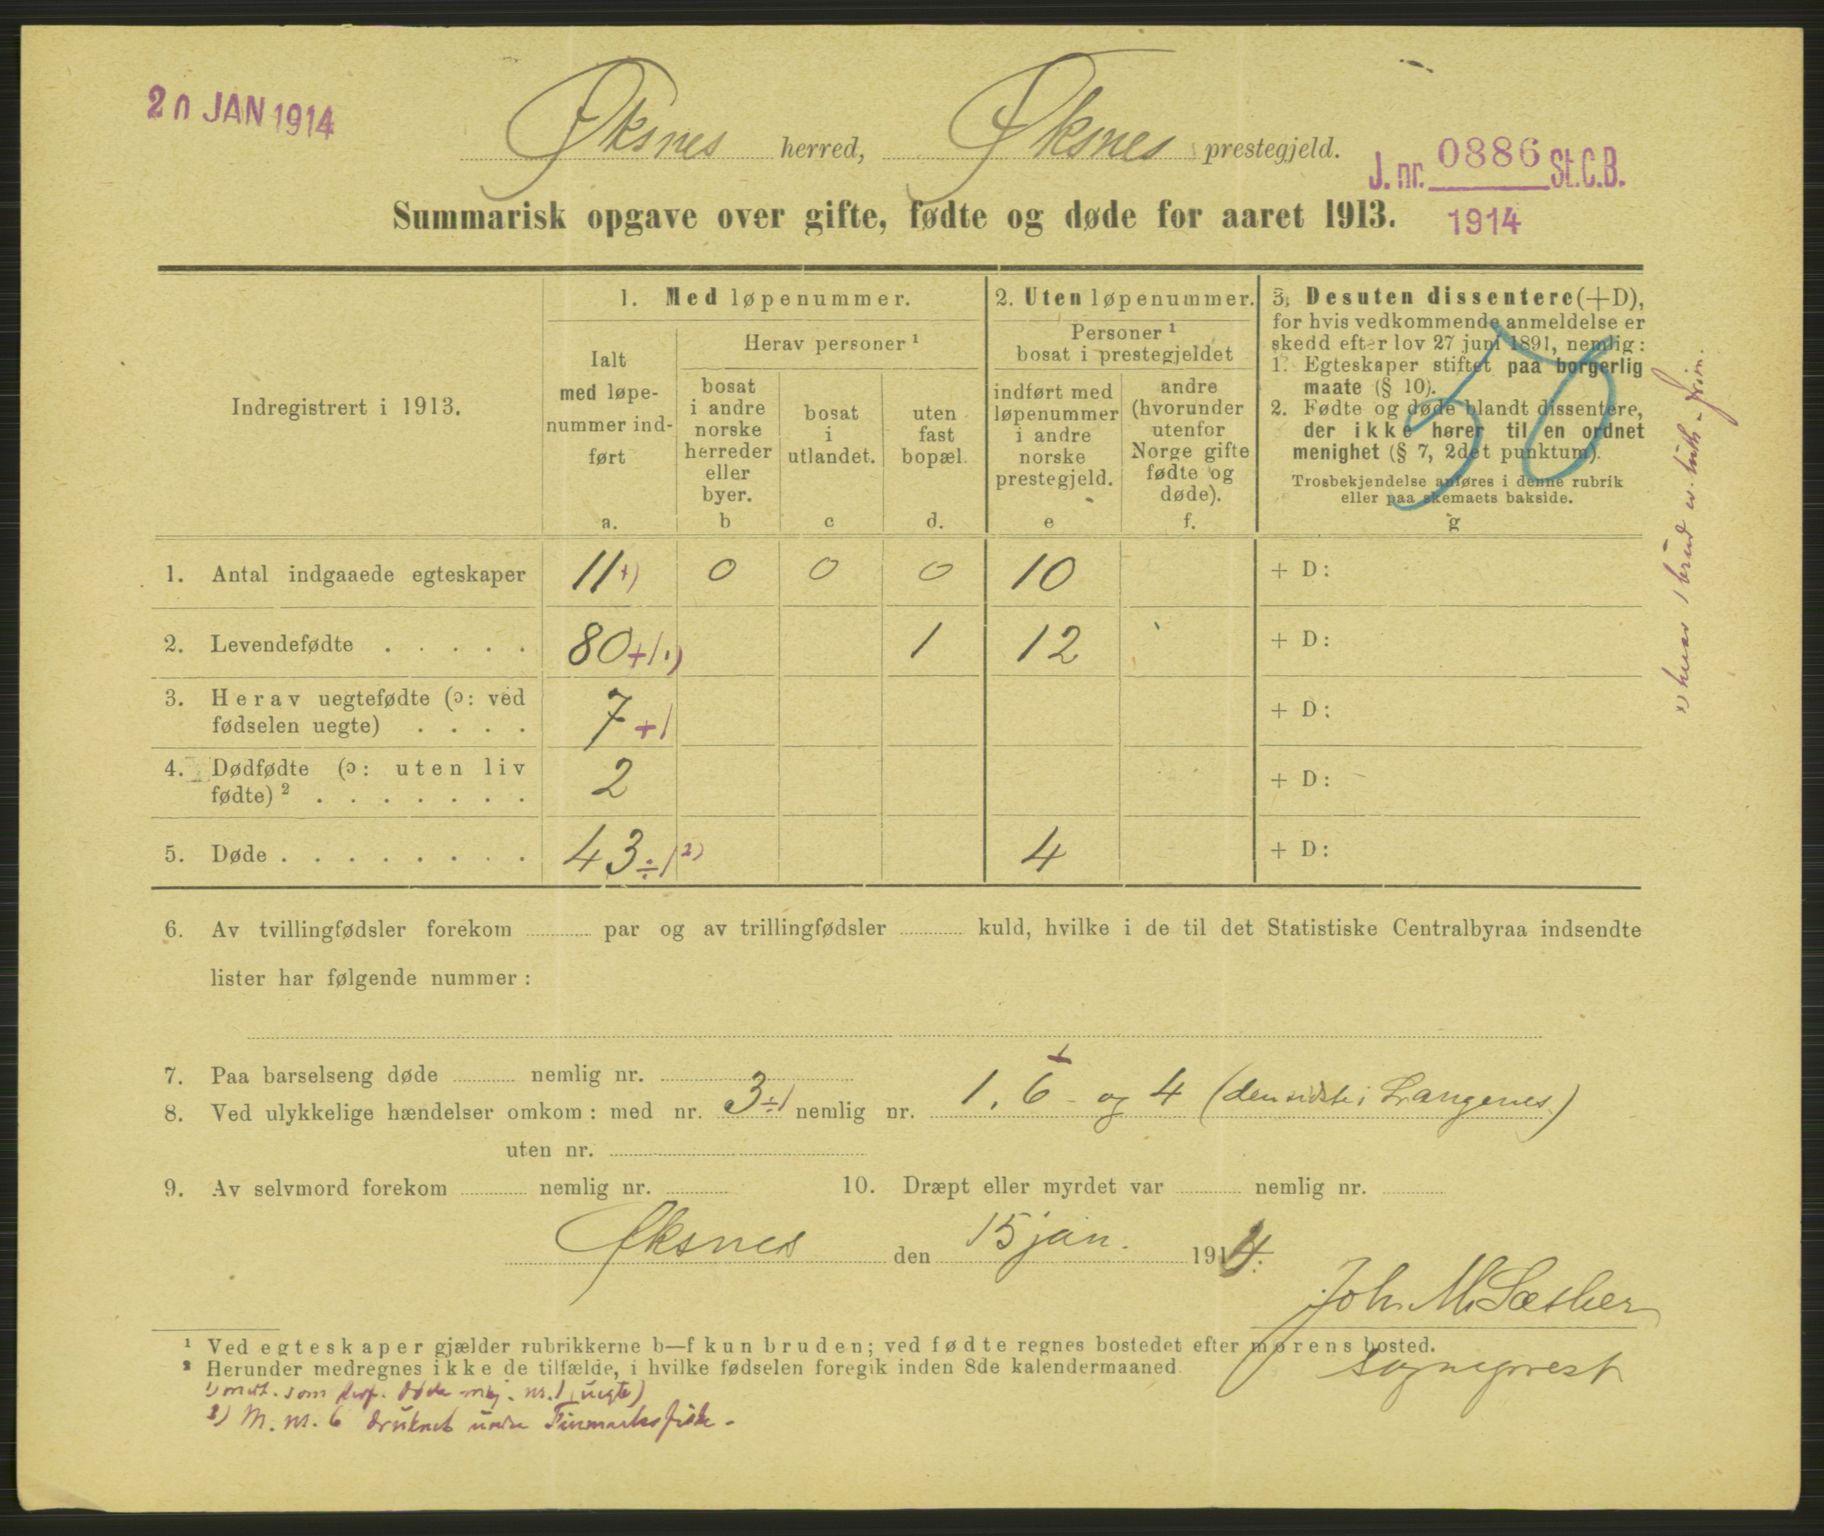 20 JAN 1914
Øksnes herred, Øksnes prestegjeld.
J. nr. 0886 St.C.B.
1914
Summarisk opgave over gifte, fødte og døde for aaret 1913.
Indregistrert i 1913.
1. Med løpenummer.
Ialt med løpenummer indført
a.
Herav personer ¹
bosat i andre norske herreder eller byer.
b
bosat i utlandet.
c
uten fast bopæl.
d.
2. Uten løpenummer.
Personer ¹ bosat i prestegjeldet
indført med løpenummer i andre norske prestegjeld.
e
andre (hvorunder utenfor Norge gifte fødte og døde).
f.
3. Desuten dissentere (+D),
for hvis vedkommende anmeldelse er
skedd efter lov 27 juni 1891, nemlig:
1. Egteskaper stiftet paa borgerlig
maate (§ 10).
2. Fødte og døde blandt dissentere,
der ikke hører til en ordnet
menighet (§ 7, 2det punktum).
Trosbekjendelse anføres i denne rubrik
eller paa skemaets bakside.
g
50
1. Antal indgaaede egteskaper 11 x) 0 0 0 10 + D:
2. Levendefødte . . . . . 80 +1 1) 1 12 + D:
3. Herav uegtefødte (ɔ: ved
fødselen uegte) . . . . 7 +1 + D:
4. Dødfødte (ɔ: uten liv
fødte) ² . . . . . . . 2 + D:
5. Døde . . . . . . . . 43 ÷1 2) 4 + D:
x) hvis 1 brud ev. luth.
6. Av tvillingfødsler forekom par og av trillingfødsler kuld, hvilke i de til det Statistiske Centralbyraa indsendte
lister har følgende nummer:
7. Paa barselseng døde nemlig nr.
8. Ved ulykkelige hændelser omkom: med nr. 3 ÷1 nemlig nr. 1, 6 + og 4 (den sidste i Langenes.)
uten nr.
9. Av selvmord forekom nemlig nr. 10. Dræpt eller myrdet var nemlig nr.
Øksnes den 15 jan. 1914.
Joh. M. Sæther
sogneprest
¹ Ved egteskaper gjælder rubrikkerne b—f kun bruden; ved fødte regnes bostedet efter morens bosted.
² Herunder medregnes ikke de tilfælde, i hvilke fødselen foregik inden 8de kalendermaaned.
1) som døde nr. 1 (uegte)
2) M. nr. 6 druknet under Finmarksfiske.